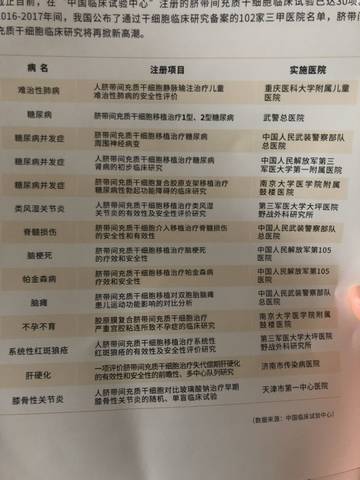 截止目前，在“中国临床试验中心”注册的脐带间充质干细胞临床试验已达30项。
2016-2017年间，我国公布了通过干细胞临床研究备案的102家三甲医院名单，脐带间
充质干细胞临床研究将再掀新高潮。
病 名 注册项目 实施医院
难治性肺病 人脐带间充质干细胞静脉输注治疗儿童 重庆医科大学附属儿童
难治性肺病的安全性评价 医院
糖尿病 脐带间充质干细胞移植治疗1型、2型糖尿病 武警总医院
糖尿病并发症 脐带间充质干细胞移植治疗糖尿病 中国人民武装警察部队
周围神经病变 总医院
糖尿病并发症 人脐带间充质干细胞移植治疗糖尿病 中国人民解放军第三
肾病的初步临床研究 军医大学第一附属医院
糖尿病并发症 脐带间充质干细胞复合胶原支架移植治疗 南京大学医学院附属
糖尿病性勃起功能障碍的临床研究 鼓楼医院
类风湿关节炎 人脐带间充质干细胞移植治疗类风湿 第三军医大学大坪医院
关节炎的有效性及安全性评价研究 野战外科研究所
脊髓损伤 脐带间充质干细胞介入移植治疗脊髓损伤 中国人民武装警察部队
的安全性和有效性 总医院
脑梗死 脐带间充质干细胞移植治疗脑梗死 中国人民解放军第105
的疗效和安全性 医院
帕金森病 脐带间充质干细胞移植治疗帕金森病 中国人民解放军第105
疗效和安全性 医院
脑瘫 脐带间充质干细胞移植对双胞胎脑瘫 中国人民武装警察部队
患儿运动功能影响的对比分析 总医院
不孕不育 胶原膜复合脐带间充质干细胞治疗 南京大学医学院附属
严重宫腔粘连所致不孕症的临床研究 鼓楼医院
系统性红斑狼疮 人脐带间充质干细胞移植治疗系统性 第三军医大学大坪医院
红斑狼疮的有效性及安全性评价研究 野战外科研究所
肝硬化 一项评价脐带间充质干细胞治疗失代偿期肝硬化 济南市传染病医院
的有效性和安全性的前瞻性、多中心队列研究
膝骨性关节炎 人脐带间充质干细胞对比玻璃酸钠治疗早期 天津市第一中心医院
膝骨性关节炎的随机、单盲临床试验
（数据来源：中国临床试验中心）